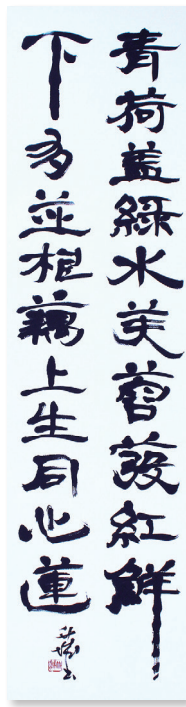 青荷蓋綠水芙蓉發紅鮮
下有並根藕上生同心蓮